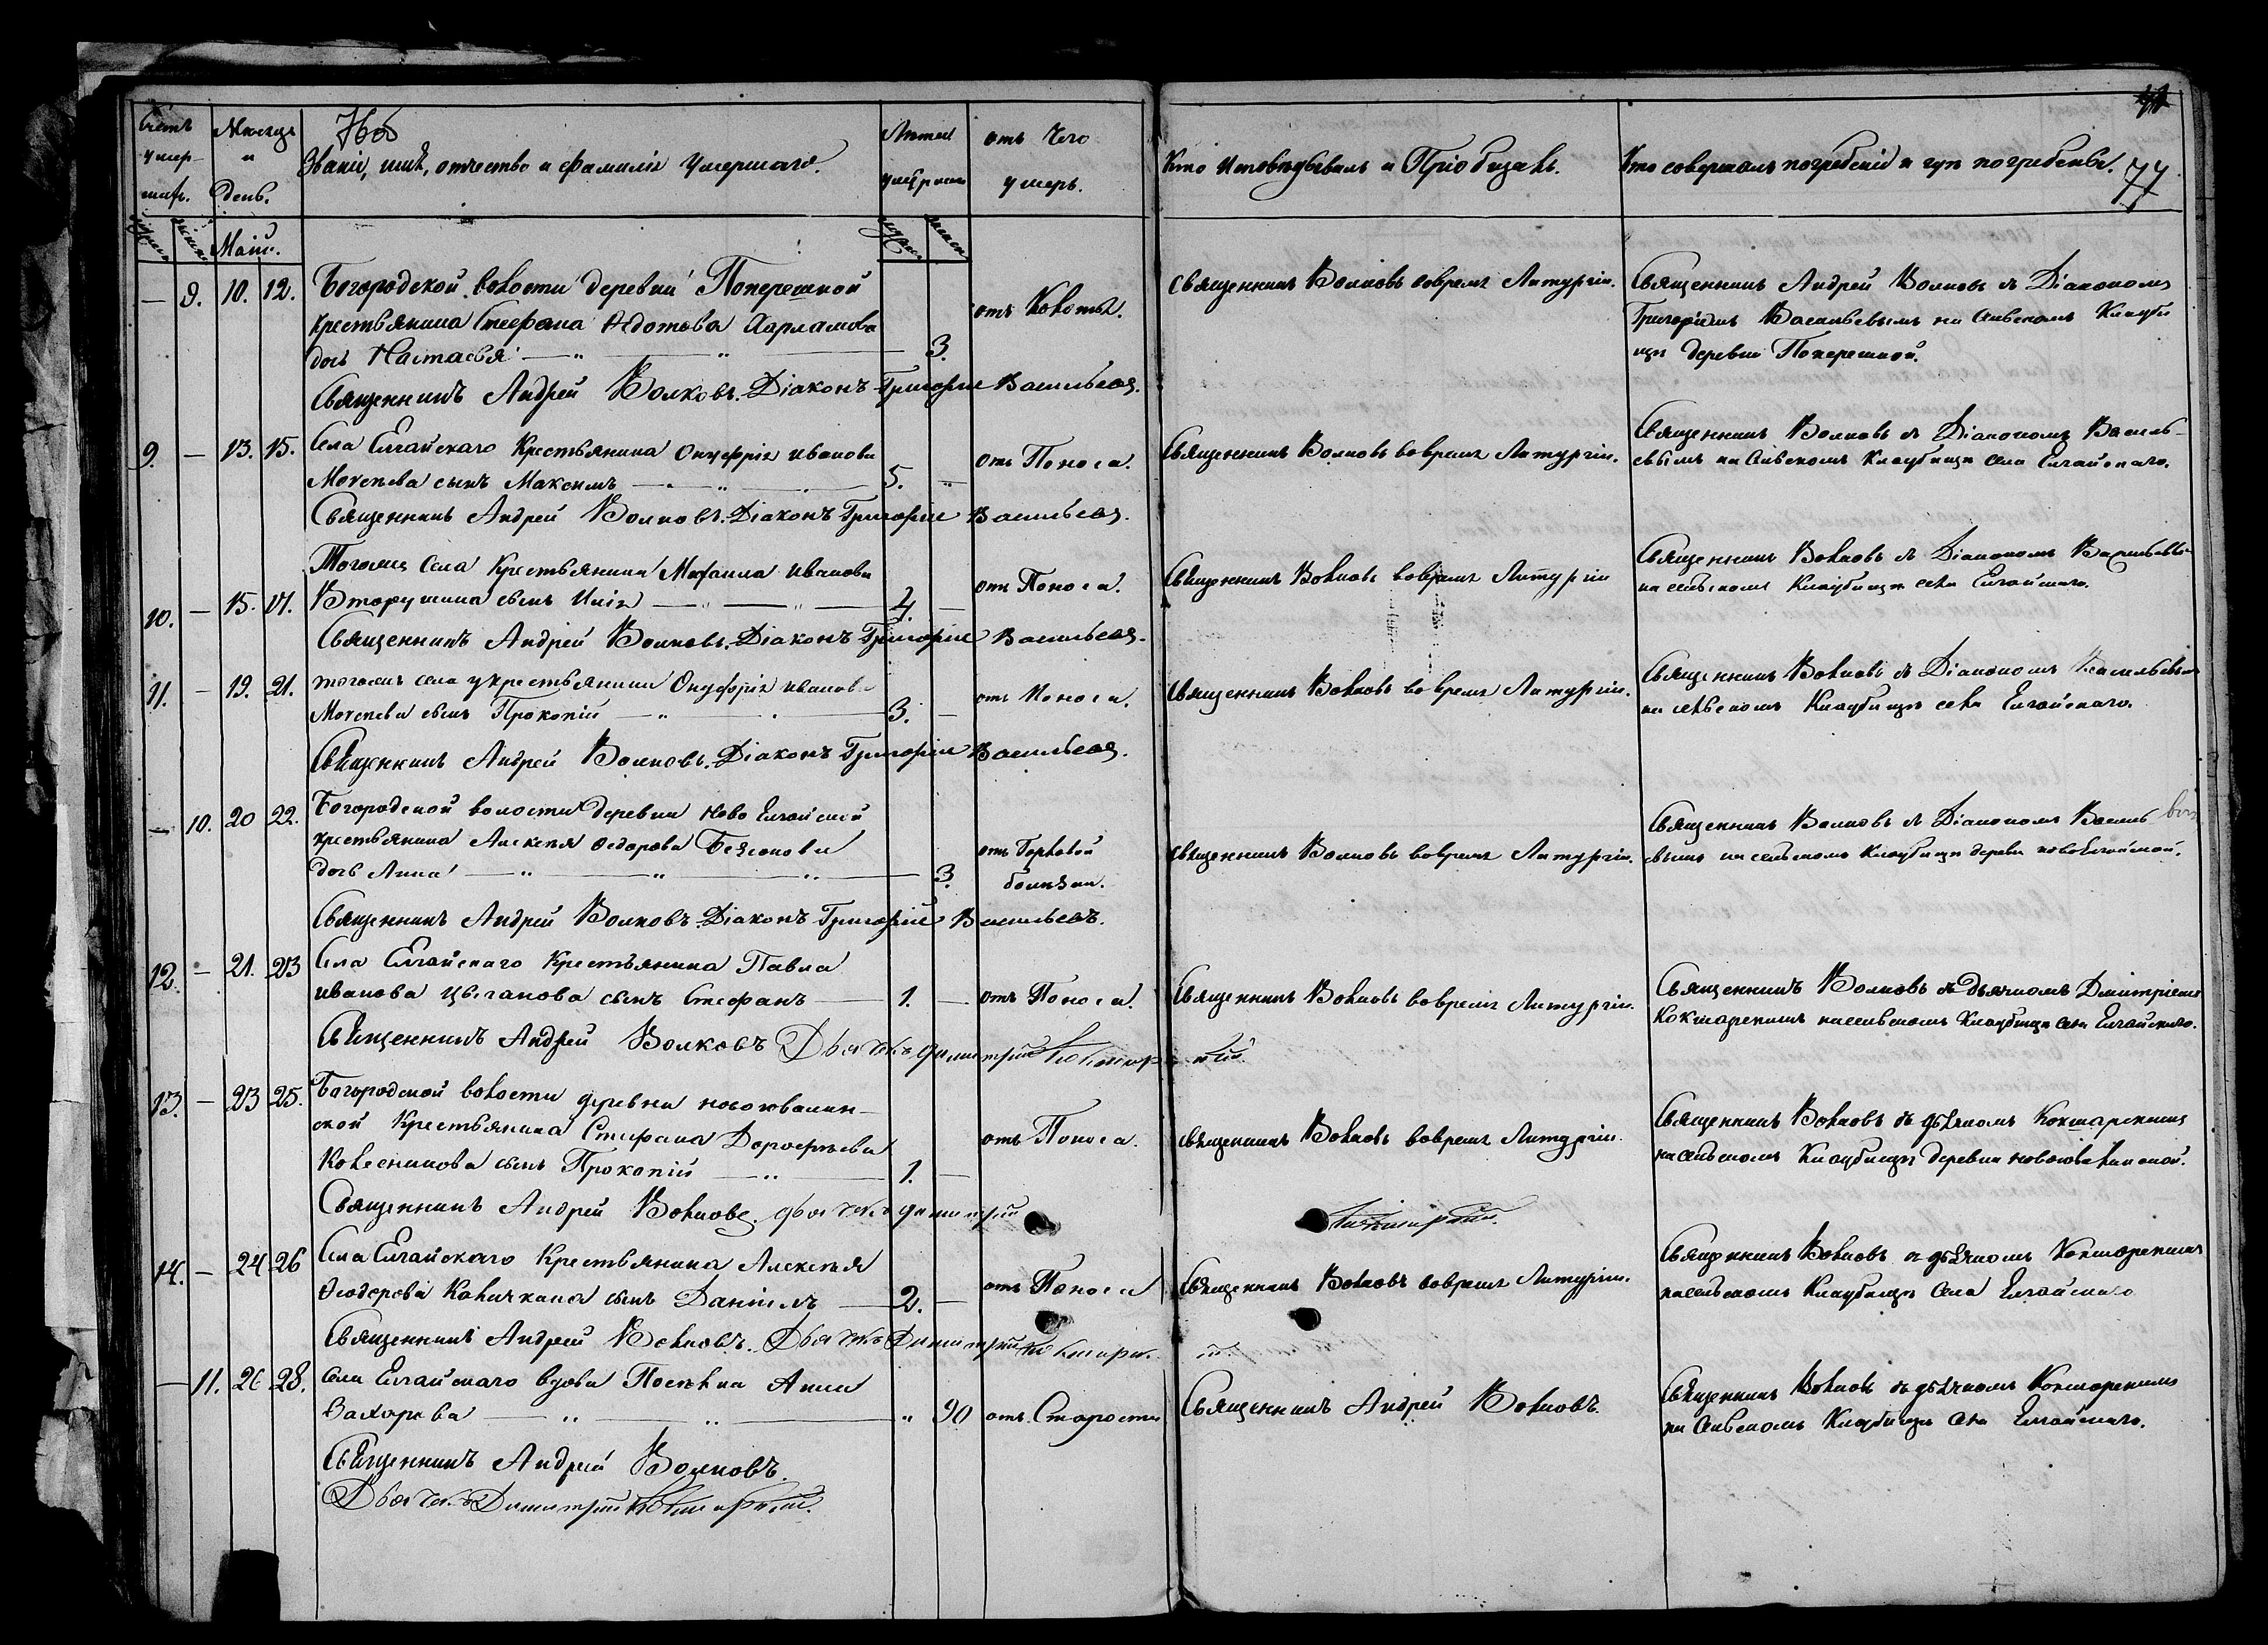 Счетъ умер-шихъ.
Мѣсяцъ и день.
76об
Званіе, имя, отчество и фамилія умершаго.
Лѣта умершаго
отъ чего умеръ.
Кто исповѣдывалъ и Пріобщалъ.
Кто совершалъ погребеніе и гдѣ погребены.
77
Маій.
— 9. 10. 12.
Богородской волости деревни Поперешной
крестьянина Стефана Ѳедотова Харламова
дочь Настасья — „ — „ — 3.
отъ Колотья.
Священникъ Волковъ вовремя Литургіи.
Священникъ Андрей Волковъ съ Діакономъ
Григоріемъ Васильевымъ на сельскомъ Кладби
щѣ деревни Поперешной.
Священникъ Андрей Волковъ. Діаконъ Григорій Васильевъ.
9. — 13. 15.
Села Елгайскаго Крестьянина Онуфрія Иванова
сынъ Максимъ — „ — 5. —
отъ Поноса.
Священникъ Волковъ вовремя Литургіи.
Священникъ Волковъ съ Діакономъ Василь-
евымъ на сельскомъ Кладбищѣ села Елгайскаго.
Священникъ Андрей Волковъ. Діаконъ Григорій Васильевъ.
10. — 15. 17.
Тогожъ села Крестьянина Михаила Иванова
Вторушина сынъ Илія — „ — „ — 4. —
отъ Поноса.
Священникъ Волковъ вовремя Литургіи
Священникъ Волковъ съ Діакономъ Васильевы
на сельскомъ Кладбищѣ села Елгайскаго.
Священникъ Андрей Волковъ. Діаконъ Григорій Васильевъ.
11. — 19. 21.
тогожъ села у крестьянина Онуфрія Иванова
сынъ Прокопій — „ — 3. —
отъ Поноса.
Священникъ Волковъ вовремя Литургіи.
Священникъ Волковъ съ Діакономъ Васильевым
на сельскомъ Кладбищѣ села Елгайскаго.
Священникъ Андрей Волковъ. Діаконъ Григорій Васильевъ.
— 10. 20 22.
Богородской волости деревни Ново Елгайской
крестьянина Алексѣя Ѳедорова Безсонова
дочь Анна — „ — „ — „ — 3.
отъ Горловой
болѣзни.
Священникъ Волковъ вовремя Литургіи.
Священникъ Волковъ съ Діакономъ Василь
евымъ на сельскомъ Кладбищѣ деревни новоЕлгайской.
Священникъ Андрей Волковъ. Діаконъ Григорій Васильевъ.
12. — 21. 23
Села Елгайскаго Крестьянина Павла
Иванова Цыганова сынъ Стефанъ — 1. —
отъ Поноса.
Священникъ Волковъ вовремя Литургіи.
Священникъ Волковъ съ дьячкомъ Димитріемъ
Кокшарскимъ на сельскомъ Кладбищѣ села Елгайскаго.
Священникъ Андрей Волковъ Дьячекъ Димитрій Кокшарскій.
13. — 23 25.
Богородской волости деревни новоювалин-
ской Крестьянина Стефана Дорофѣева
Колесникова сынъ Прокопій — „ — 1. —
отъ Поноса.
Священникъ Волковъ вовремя Литургіи.
Священникъ Волковъ съ дьячкомъ Кокшарскимъ
на сельскомъ Кладбищѣ деревни новоювалинской.
Священникъ Андрей Волковъ. дьячекъ Димитрій Кокшарскій.
14. — 24 26
Села Елгайскаго Крестьянина Алексѣя
Ѳеодорова Каличкина сынъ Даніилъ — 2. —
отъ Поноса
Священникъ Волковъ вовремя Литургіи.
Священникъ Волковъ съ дьячкомъ Кокшарскимъ
на сельскомъ Кладбищѣ села Елгайскаго
Священникъ Андрей Волковъ. Дьячекъ Димитрій Кокшарскій.
— 11. 26 28.
Села Елгайскаго вдова Анна
Захарова — „ — „ — „ 90
отъ Старости
Священникъ Андрей Волковъ.
Священникъ Волковъ съ дьячкомъ Кокшарскимъ
на сельскомъ Кладбищѣ села Елгайскаго.
Священникъ Андрей Волковъ.
Дьячекъ Димитрій Кокшарскій.